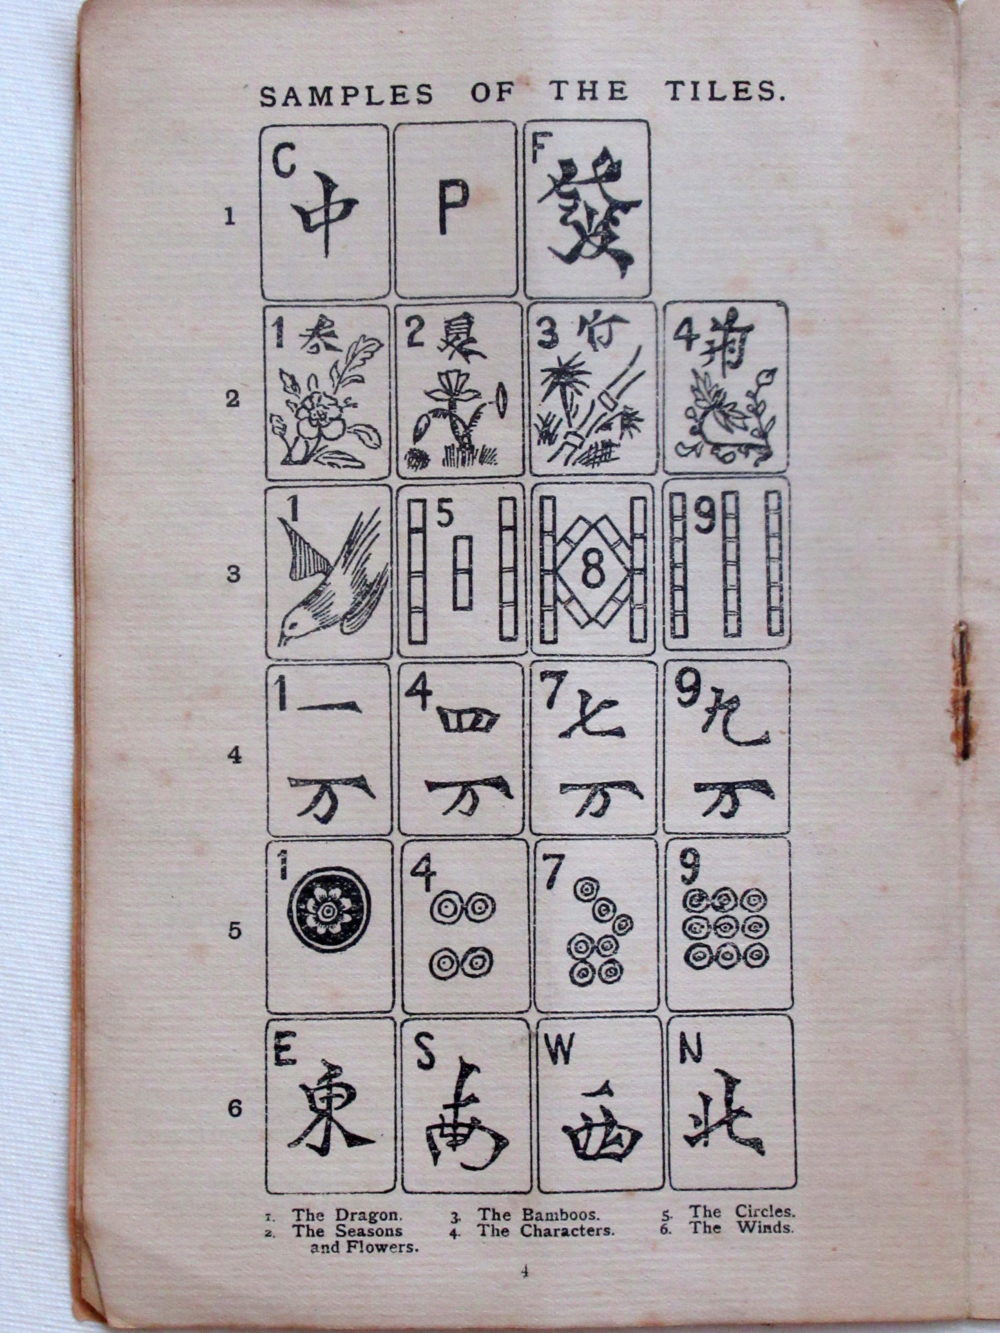 SAMPLES OF THE TILES.
1
C 中
P
F 發
2
1
2
3 竹
4 菊
3
1
5
8
9
4
1 一
万
4 四
万
7 七
万
9 九
万
5
1
4
7
9
6
E 東
S 南
W 西
N 北
1. The Dragon.
2. The Seasons
and Flowers.
3. The Bamboos.
4. The Characters.
5. The Circles.
6. The Winds.
4